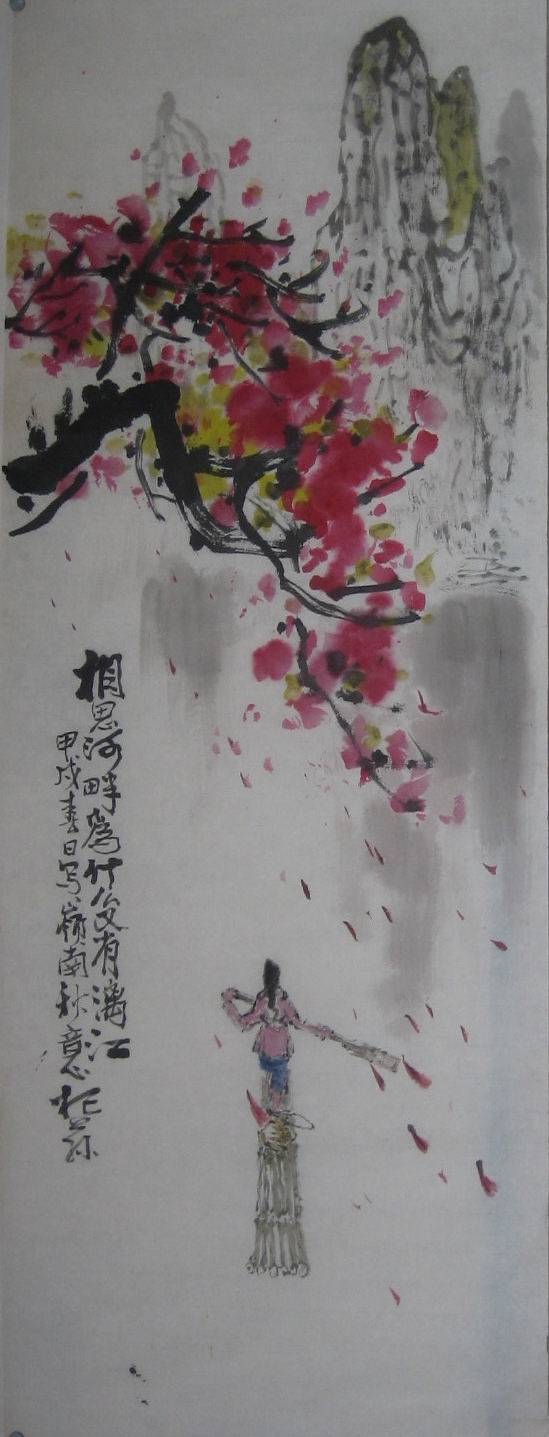 相思河畔為什么又有漓江
甲戌春日写嶺南秋意